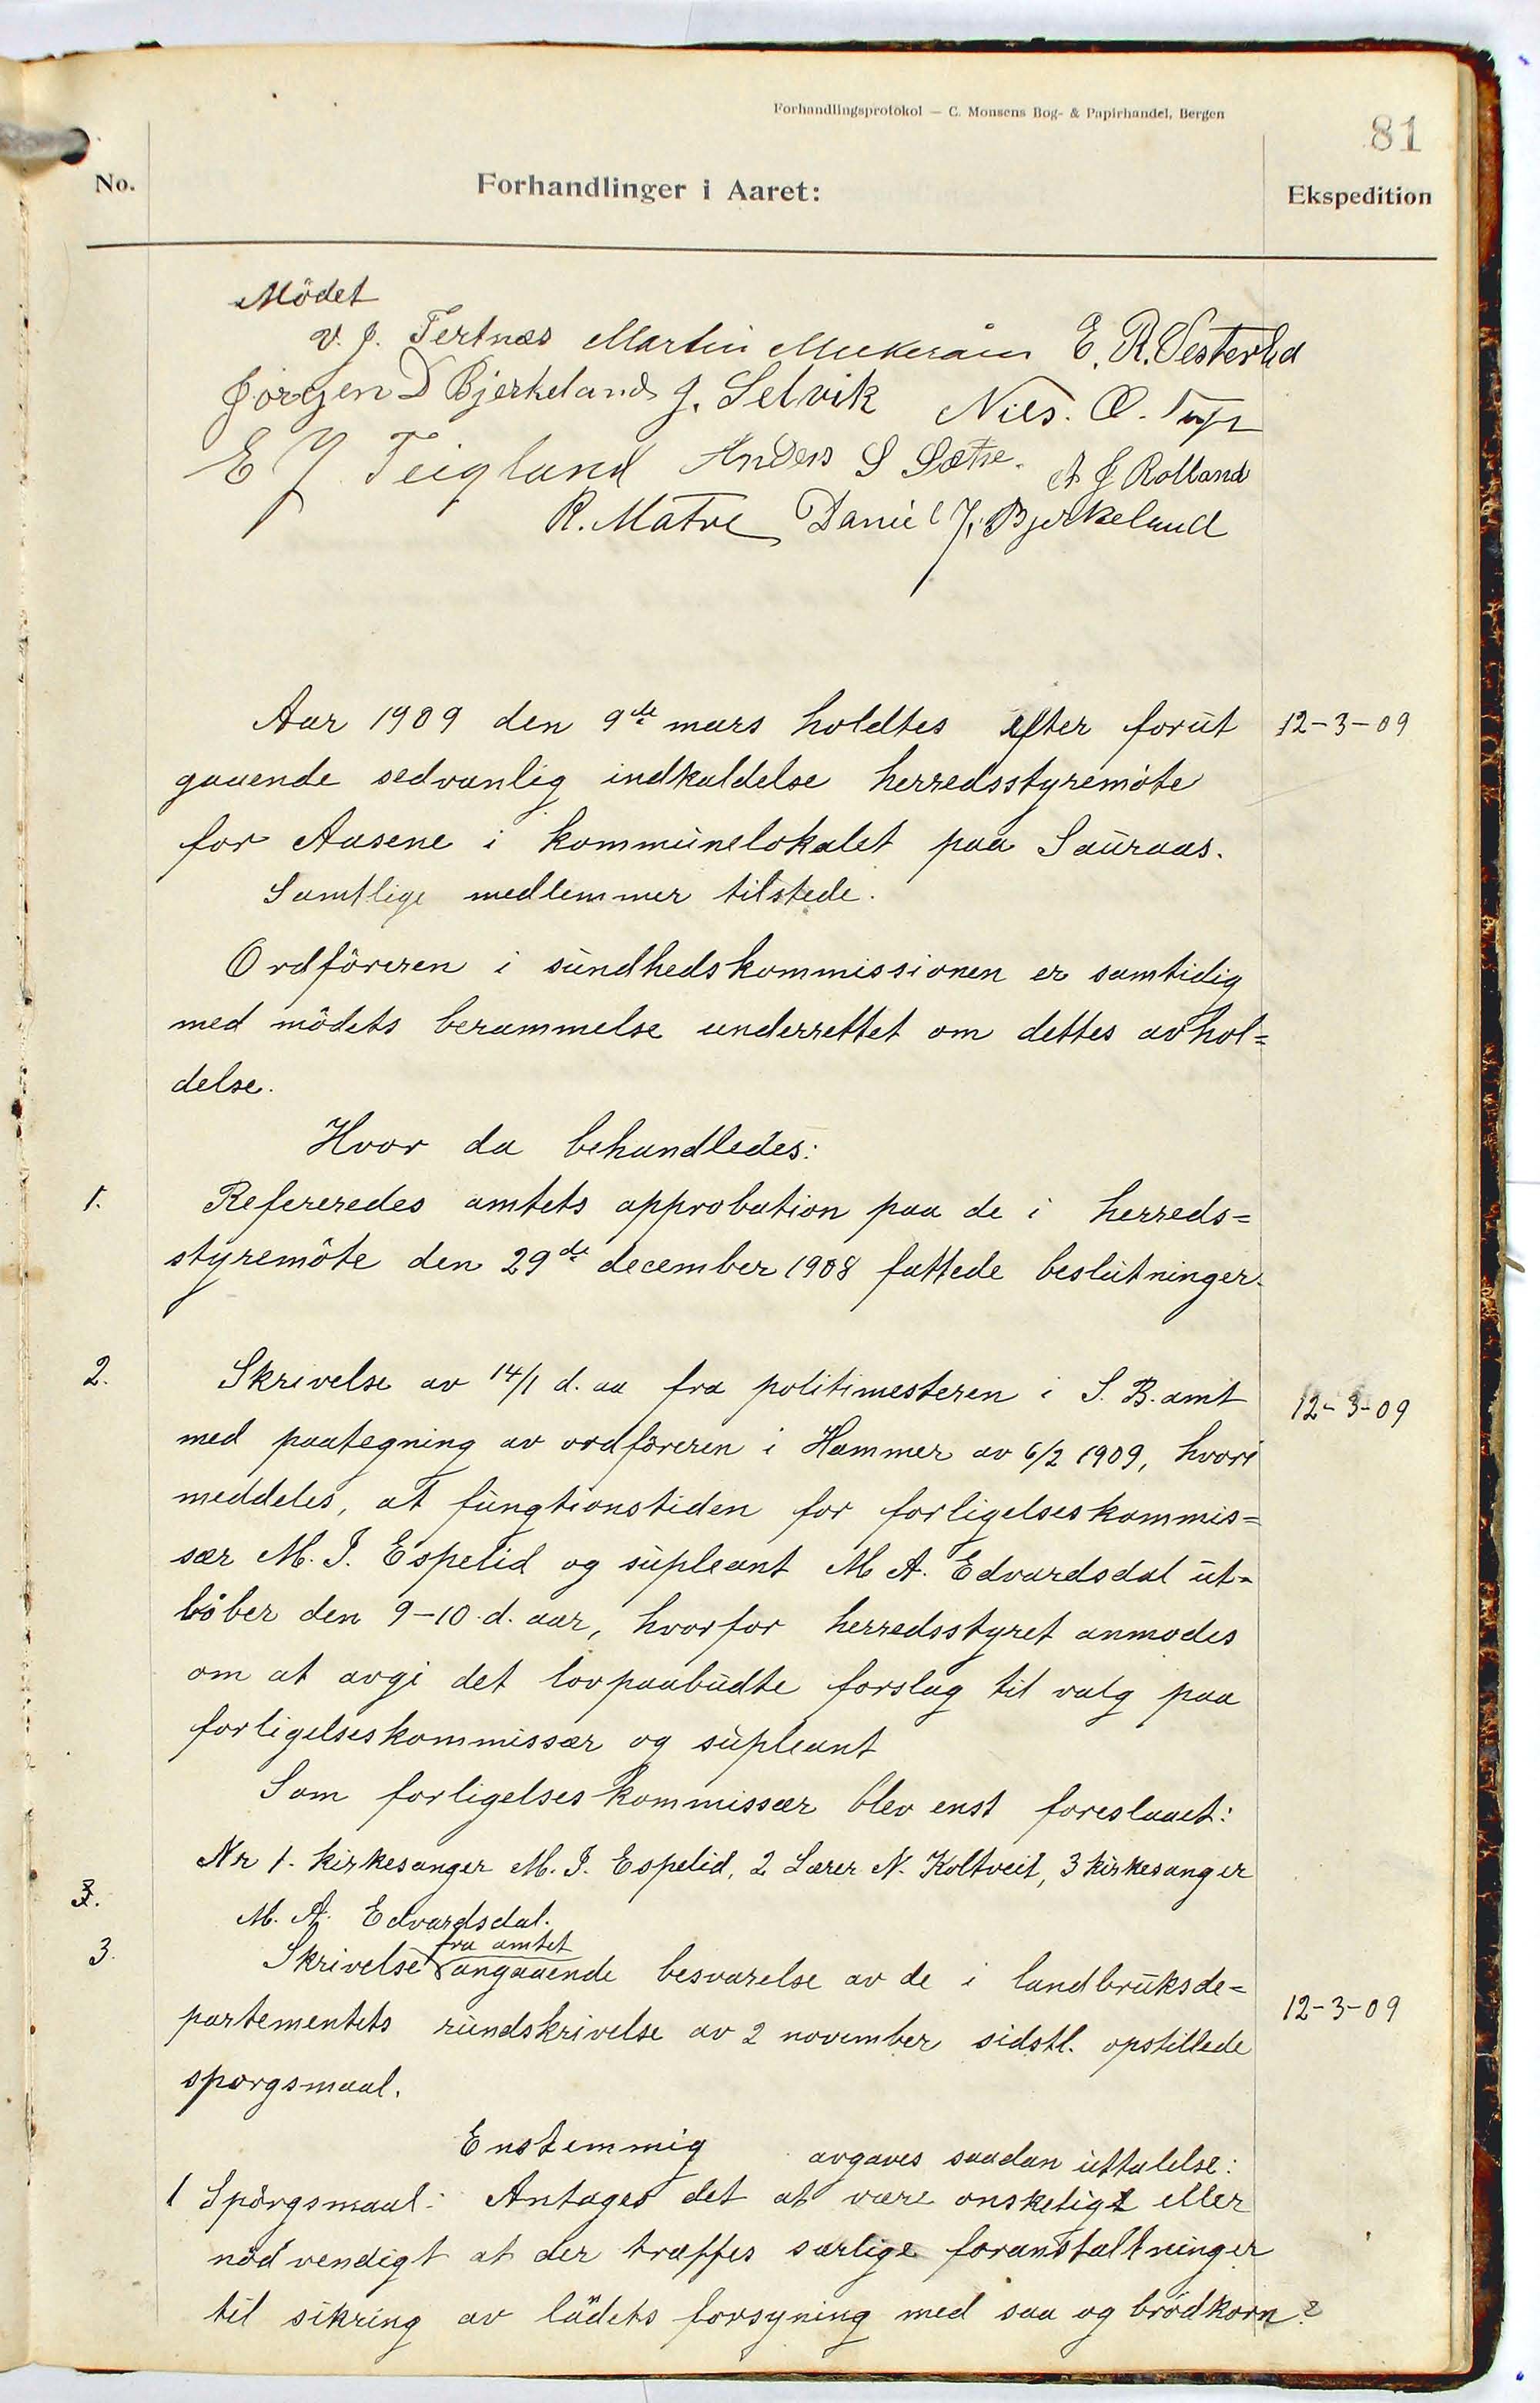 Forhandlingsprotokol — C. Monsens Bog- & Papirhandel, Bergen
81
No.
Forhandlinger i Aaret:
Ekspedition
Mödet
V. J. Tertnæs Martin E. R. Vesterlid
Jörgen D Bjerkeland J. Selvik Nils. O.
E J Teigland Anders S Sætre. A J Rolland
R. Matre Daniel J. Bjerkeland
Aar 1909 den 9de mars holdtes efter forut 12-3-09
gaaende sedvanlig indkaldelse herredsstyremöte
for Aasene i kommunelokalet paa Sauraas.
Samtlige medlemmer tilstede.
Ordföreren i sundhedskommissionen er samtidig
med mödets berammelse underrettet om dettes avhol=
delse.
Hvor da behandledes:
1. Refereredes amtets approbation paa de i herreds=
styremöte den 29de december 1908 fattede beslutninger.
2. Skrivelse av 14/1 d. aa fra politimesteren i S. B. amt 12-3-09
med paategning av ordföreren i Hammer av 6/2 1909, hvori
meddeles, at fungtionstiden for forligelseskommis=
sær M. I. Espelid og supleant M A. Edvardsdal ut=
löber den 9-10 d. aar, hvorfor herredsstyret anmodes
om at avgi det lovpaabudte forslag til valg paa
forligelseskommissær og supleant
Som forligelseskommissær blev enst foreslaaet:
Nr 1. kirkesanger M. I. Espelid, 2 Lærer N. Koltveit, 3 kirkesanger
M. A. Edvardsdal.
3. Skrivelse fra amtet angaaende besvarelse av de i landbruksde=
partementets rundskrivelse av 2 november sidstl. opstillede 12-3-09
sporgsmaal.
Enstemmig avgaves saadan uttalelse:
1 Spörgsmaal: Antages det at være onskeligt eller
nödvendigt at der træffes særlige foranstaltninger
til sikring av ladets forsyning med saa og brödkorn?